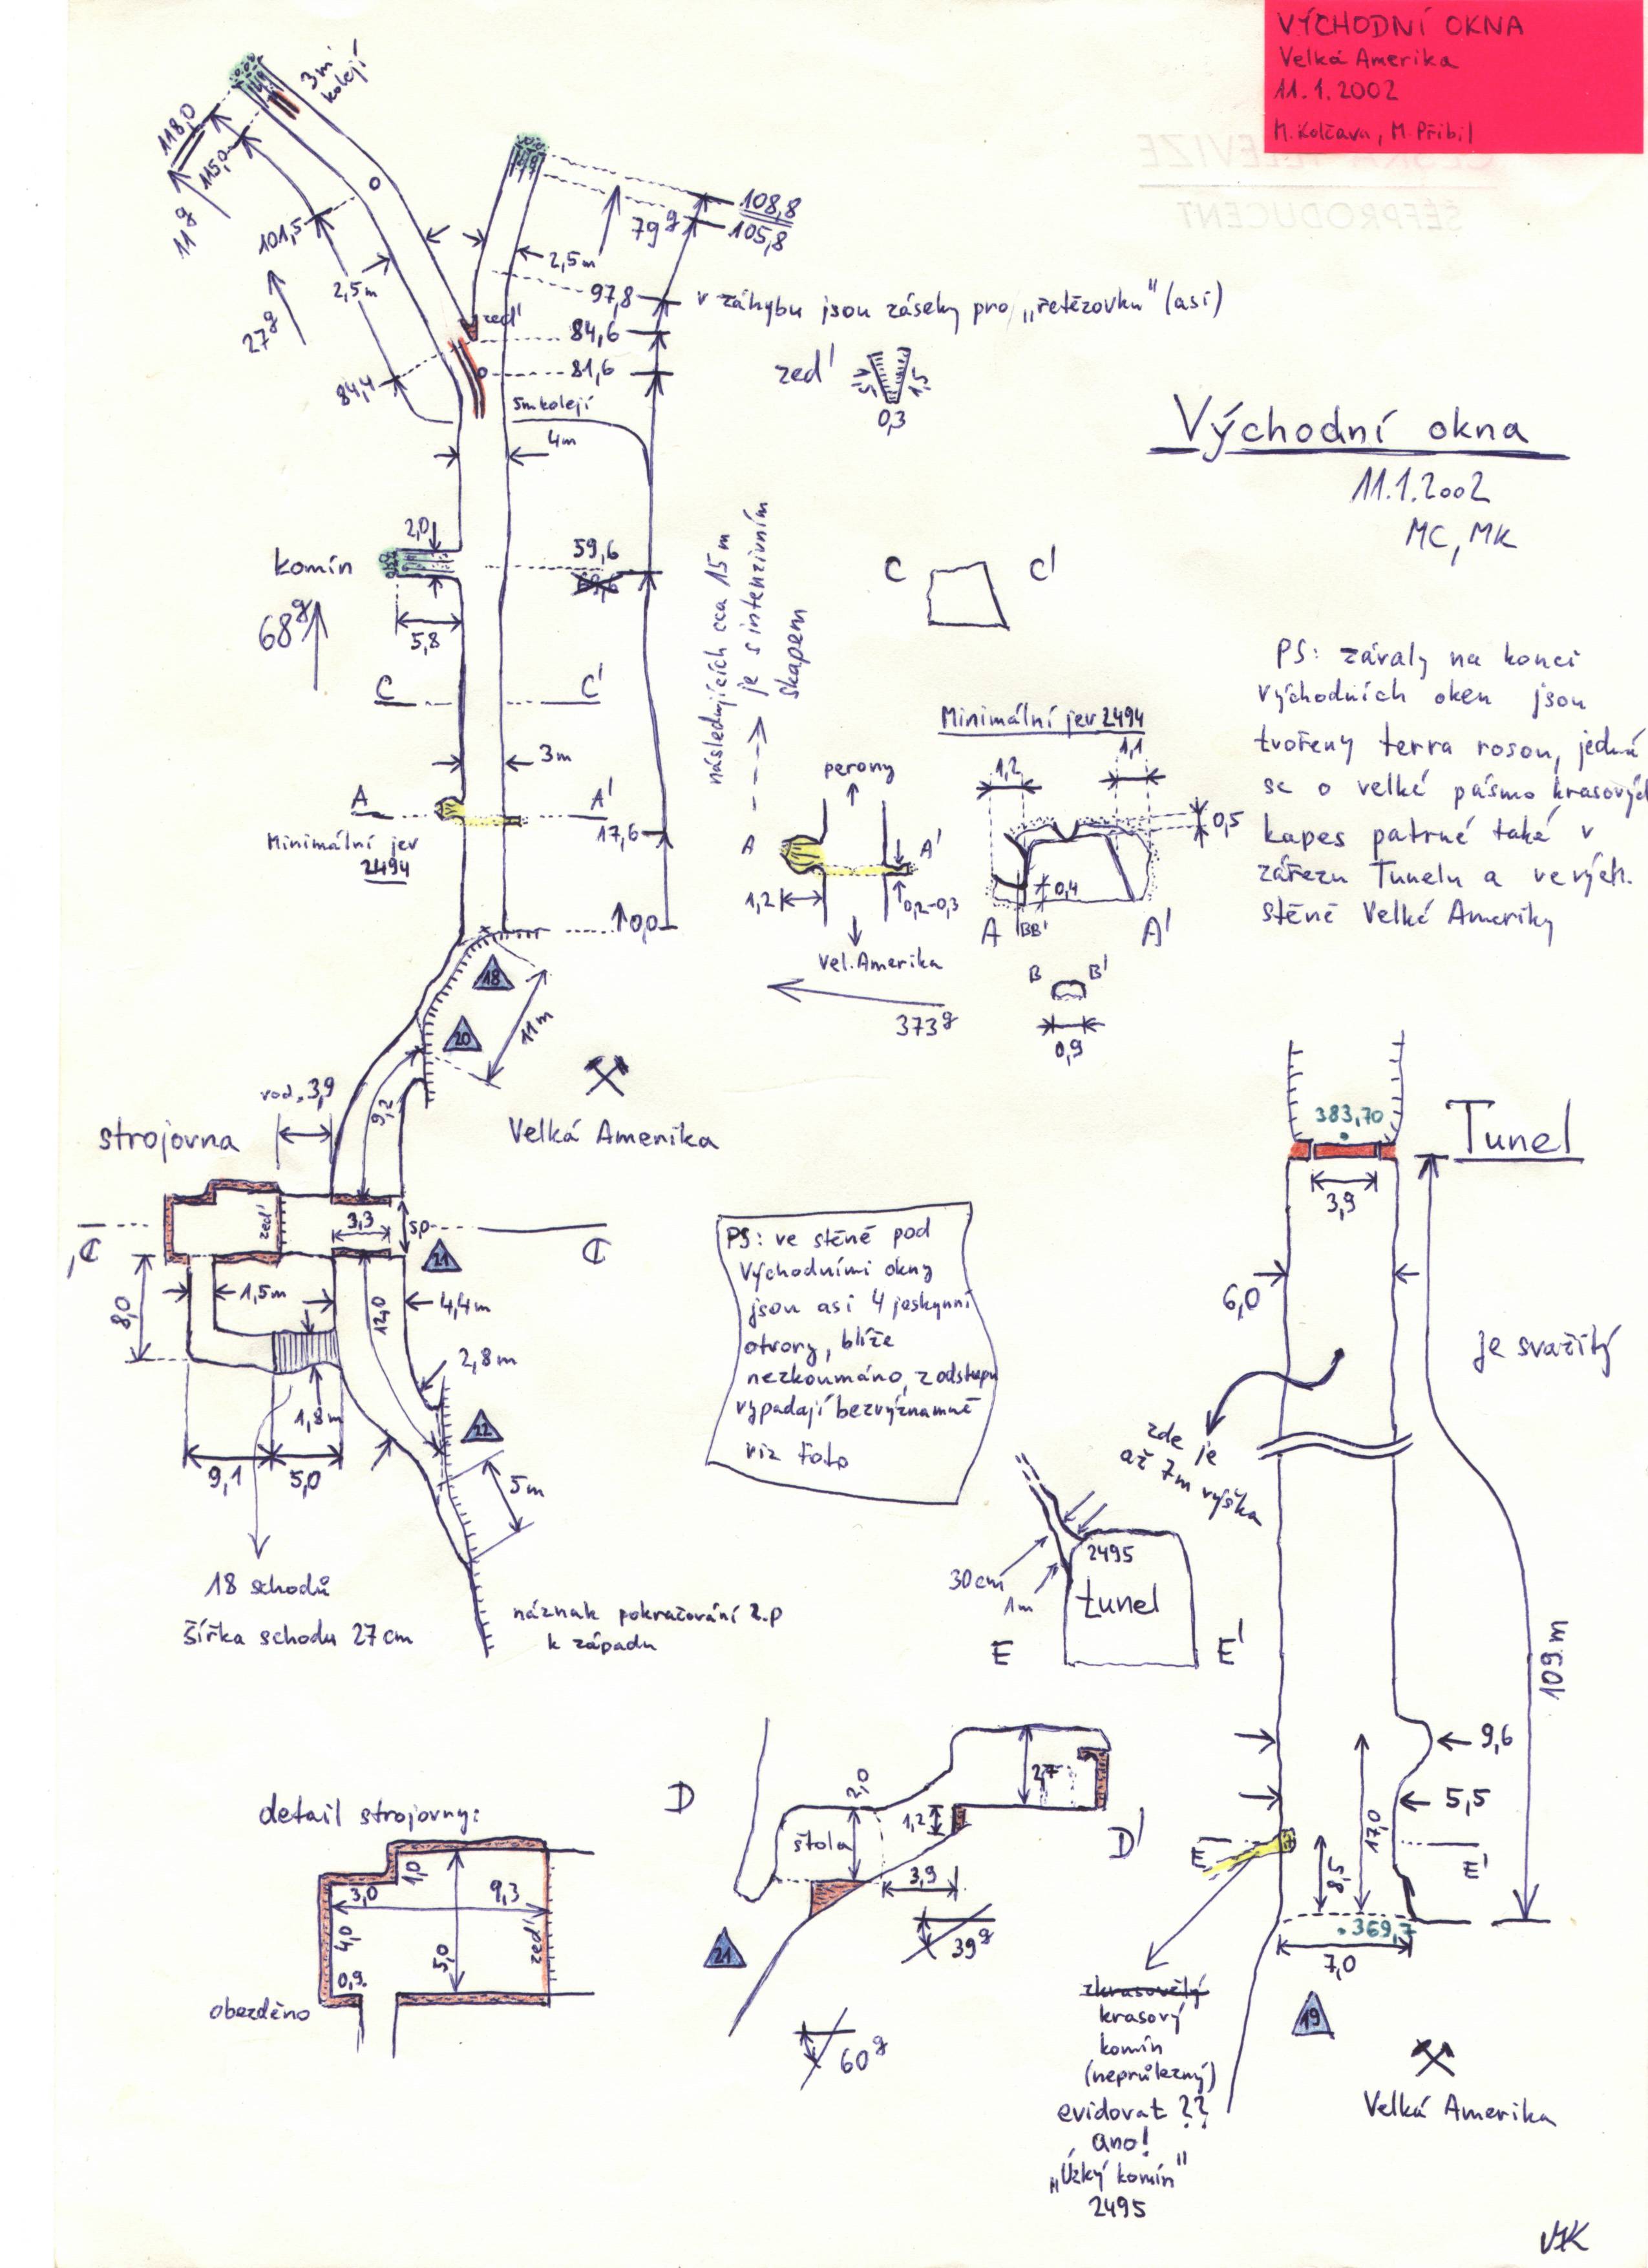 VÝCHODNÍ OKNA
Velká Amerika
11.1.2002
M. Kolčava, M. Přibil
ČESKÁ TELEVIZE
ŠÉFPRODUCENT
3m
kolejí
118,0
115,0
11g
101,5
2,5m
27g
84,4
108,8
105,8
79g
2,5m
97,8
v záhybu jsou záseky pro „řetězovku" (asi)
zeď
84,6
81,6
5m kolejí
4m
zeď
1,5
1,5
0,3
Východní okna
11.1.2002
MC, MK
2,0
komín
59,6
5,8
68g
C
C'
3m
následujících cca 15 m
je s intenzivním
skapem
C
C'
PS: závaly na konci
východních oken jsou
tvořeny terra rosou, jedná
se o velké pásmo krasových
kapes patrné také v
zářezu Tunelu a ve vých.
stěně Velké Ameriky
A
A'
Minimální jev
2494
17,6
0,0
Minimální jev 2494
perony
A
A'
1,2
0,2-0,3
Vel. Amerika
373g
1,2
1,1
0,5
0,4
A
BB'
A'
B
B'
0,9
18
20
11m
9,2
Velká Amerika
vod. 3,9
strojovna
zeď
3,3
5,0
21
8,0
1,5m
12,0
4,4m
2,8m
1,8m
22
9,1
5,0
5m
18 schodů
šířka schodu 27 cm
náznak pokračování 2.p
k západu
PS: ve stěně pod
Východními okny
jsou asi 4 jeskynní
otvory, blíže
nezkoumáno, z odstupu
vypadají bezvýznamně
viz foto
383,70
Tunel
3,9
6,0
je svažitý
zde je
až 7m výška
30cm
1m
2495
tunel
E
E'
109 m
9,6
5,5
17,0
8,5
E
E'
369,7
7,0
19
Velká Amerika
zkrasovělý
krasový
komín
(neprůlezný)
evidovat ??
ano!
„Úzký komín"
2495
detail strojovny:
3,0
1,0
9,3
4,0
5,0
zeď
0,9
obezděno
D
2,0
2,7
štola
1,2
D'
3,9
39g
21
60g